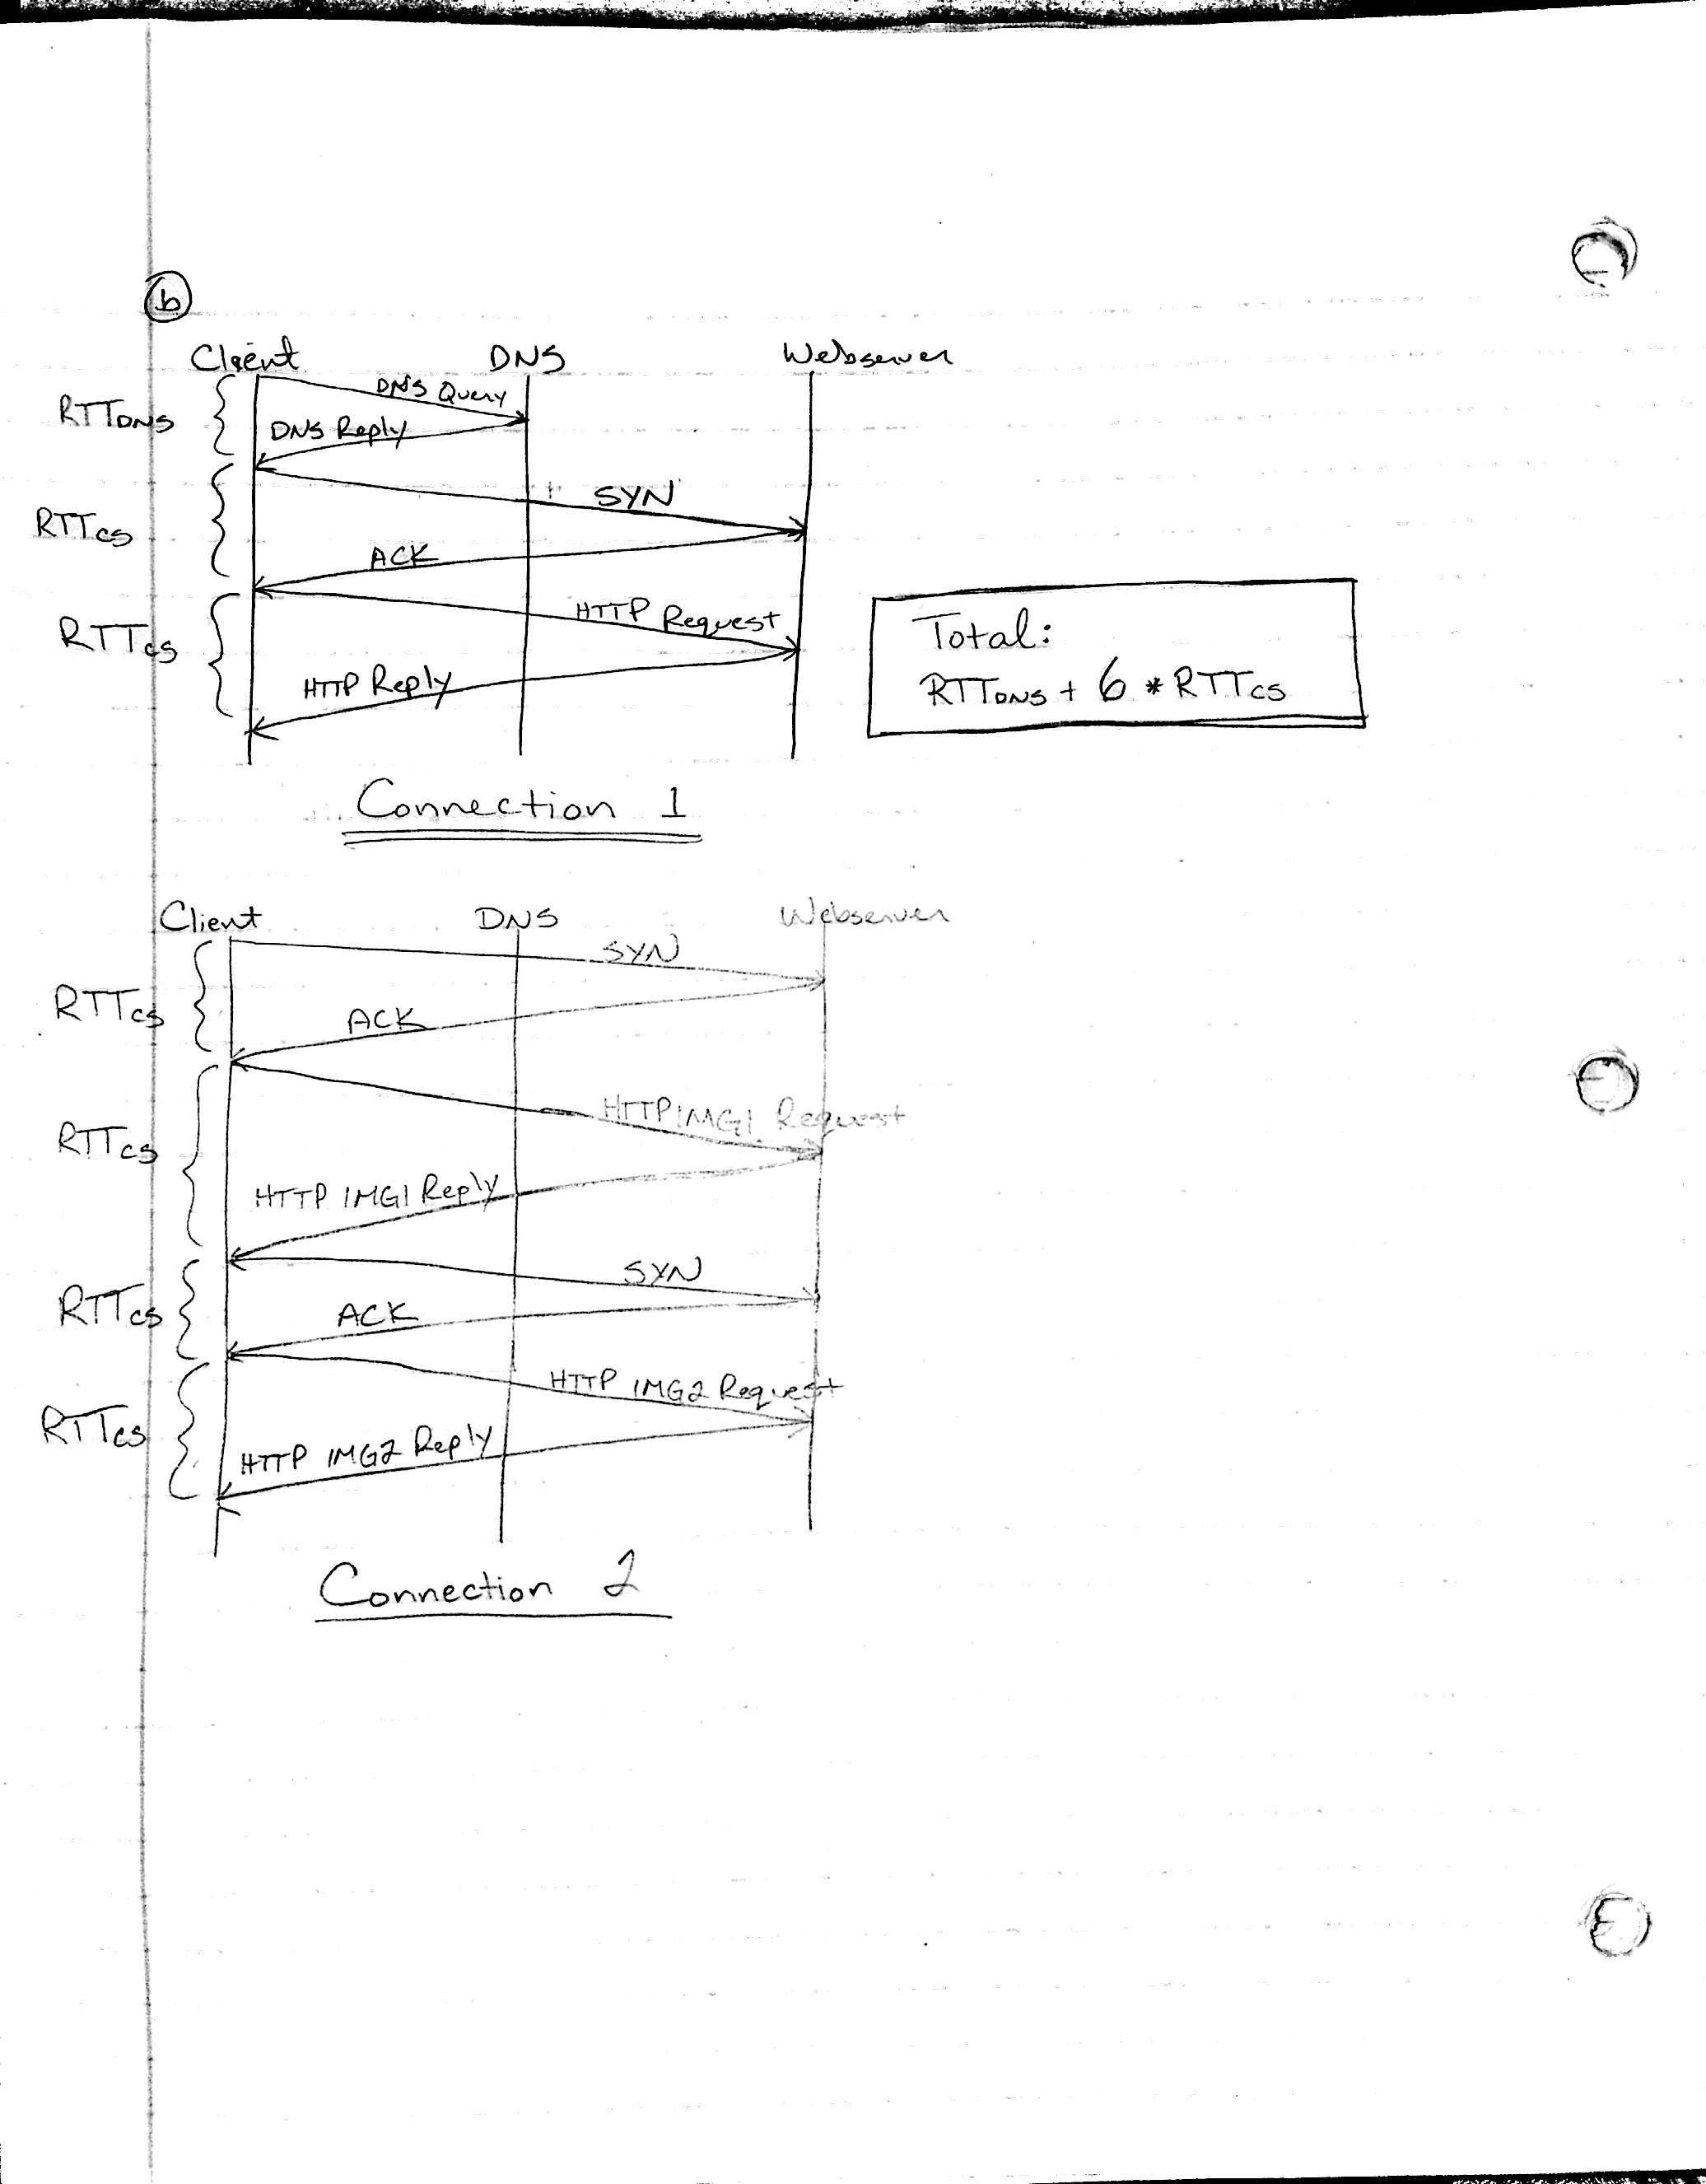 b
Client DNS Webserver
RTTDNS
DNS Query
DNS Reply
RTTcs
SYN
ACK
RTTcs
HTTP Request
HTTP Reply
Total:
RTTDNS + 6 * RTTcs
Connection 1
Client DNS Webserver
RTTcs
SYN
ACK
RTTcs
HTTP IMG1 Request
HTTP IMG1 Reply
RTTcs
SYN
ACK
RTTcs
HTTP IMG2 Request
HTTP IMG2 Reply
Connection 2